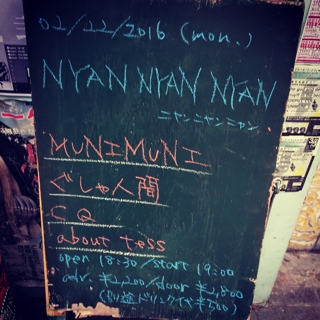 02/22/2016 (mon.)
NYAN NYAN NYAN
ニャンニャンニャン
MUNIMUNI
ぐしゃ人間
CQ
about tess
open 18:30/start 19:00
adv. ¥2,200/door ¥2,800
(別途ドリンク代¥500)